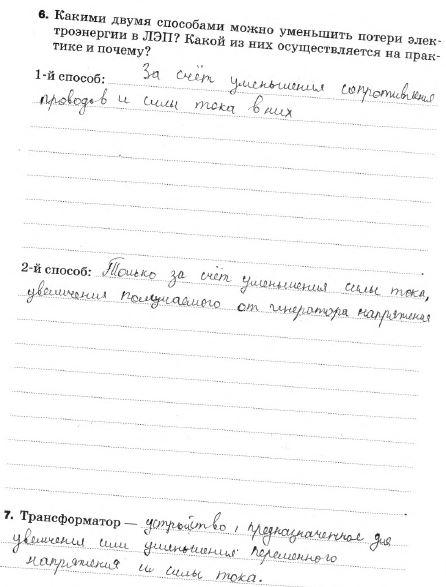 6. Какими двумя способами можно уменьшить потери элек-
троэнергии в ЛЭП? Какой из них осуществляется на прак-
тике и почему?
1-й способ: За счёт уменьшения сопротивления
проводов и силы тока в них
2-й способ: Только за счёт уменьшения силы тока,
увеличения получаемого от генератора напряжения
7. Трансформатор — устройство, предназначенное для
увеличения или уменьшения переменного
напряжения и силы тока.